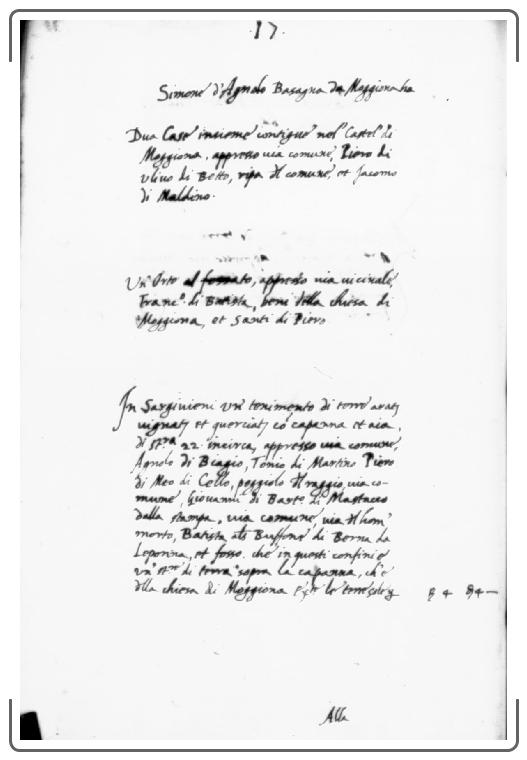 17.
Simone d'Agnolo Basagna da Moggiona ha
Due Case insieme contigue nel Castel di
Moggiona, appresso via comune, Piero di
vlivo di Betto, ripa il comune, et Jacomo
di Maldino.
Un' Orto al fossato, appresso via vicinale,
Franc.o di Batista, beni della chiesa di
Moggiona, et Santi di Piero
In Sarginieni un' tenimento di terre arat,
vignat, et querciat, có capanna et aia,
di st.ra 22 incirca, appresso via comune,
Agnolo di Biagio, Tonio di Martino Piero
di Meo di Cello, poggiolo il raggio, via co=
mune, Giovanni di Bart.o di Mastaccο
dalla stampa, via comune, via il hom'
morto, Batista als Buffone di Berna da
Leponna, et fosso. che in questi confini è
vn' st.ro di terra sopra la capanna, ch'è
della chiesa di Moggiona le terre
4 4 —
Alla